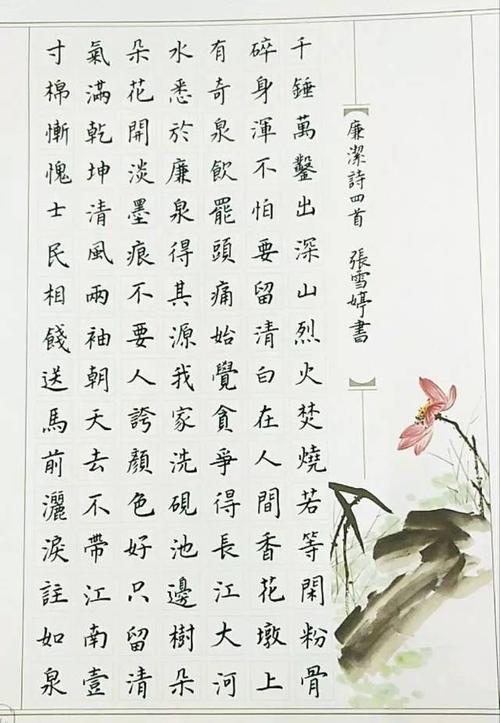 廉潔詩四首 張雪婷書
千錘萬鑿出深山烈火焚燒若等閑粉骨
碎身渾不怕要留清白在人間香花墩上
有奇泉飲罷頭痛始覺貪爭得長江大河
水悉於廉泉得其源我家洗硯池邊樹朵
朵花開淡墨痕不要人誇顏色好只留清
氣滿乾坤清風兩袖朝天去不帶江南壹
寸棉慚愧士民相餞送馬前灑淚註如泉